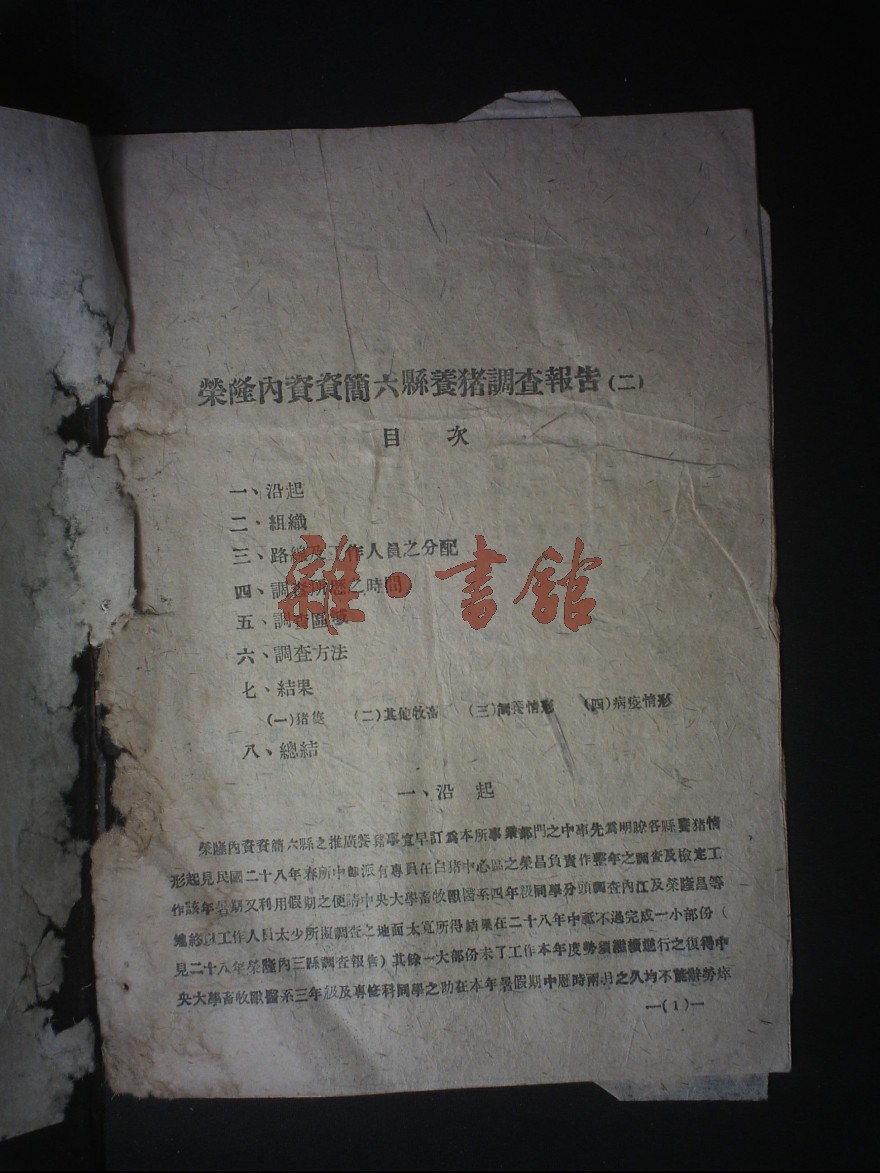 榮隆內資資簡六縣養猪調查報告(二)
目 次
一、沿起
二、組織
三、路線及工作人員之分配
四、調查所歷之時間
五、調查區域
六、調查方法
七、結果
(一)猪隻 (二)其他牧畜 (三)飼養情形 (四)病疫情形
八、總結
雜·書館
一、沿 起
榮隆內資資簡六縣之推廣養猪事宜早訂為本所事業部門之中事先為明瞭各縣養猪情
形起見民國二十八年春所中即派有專員在白猪中心區之榮昌負責作整年之調查及檢定工
作該年暑期又利用假期之便請中央大學畜牧獸醫系四年級同學分頭調查內江及榮隆昌等
地終以工作人員太少所擬調查之地面太寬所得結果在二十八年中祗不過完成一小部份(
見二十八年榮隆內三縣調查報告)其餘一大部份未了工作本年度勢須繼續進行之復得中
央大學畜牧獸醫系三年級及專修科同學之助在本年暑假期中歷時兩月之久均不能辭勞瘁
—(1)—